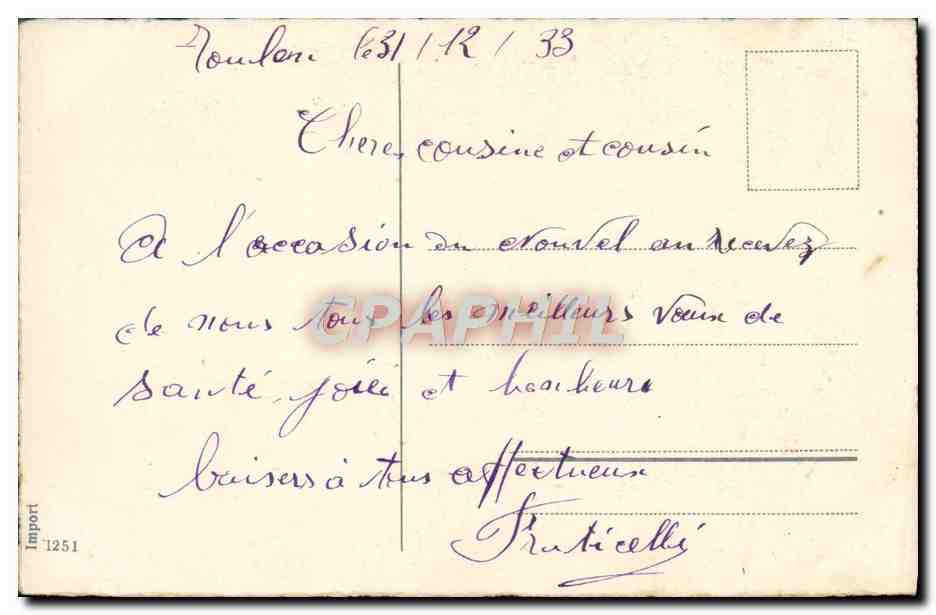 Toulon le 31/12/33
Cheres cousine et cousin
A l'occasion du Nouvel an recevez
de nous tous les meilleurs vœux de
santé, joie et bonheur
baisers à tous affectueux
Fruticelli
CPAPHIL
Import
1251